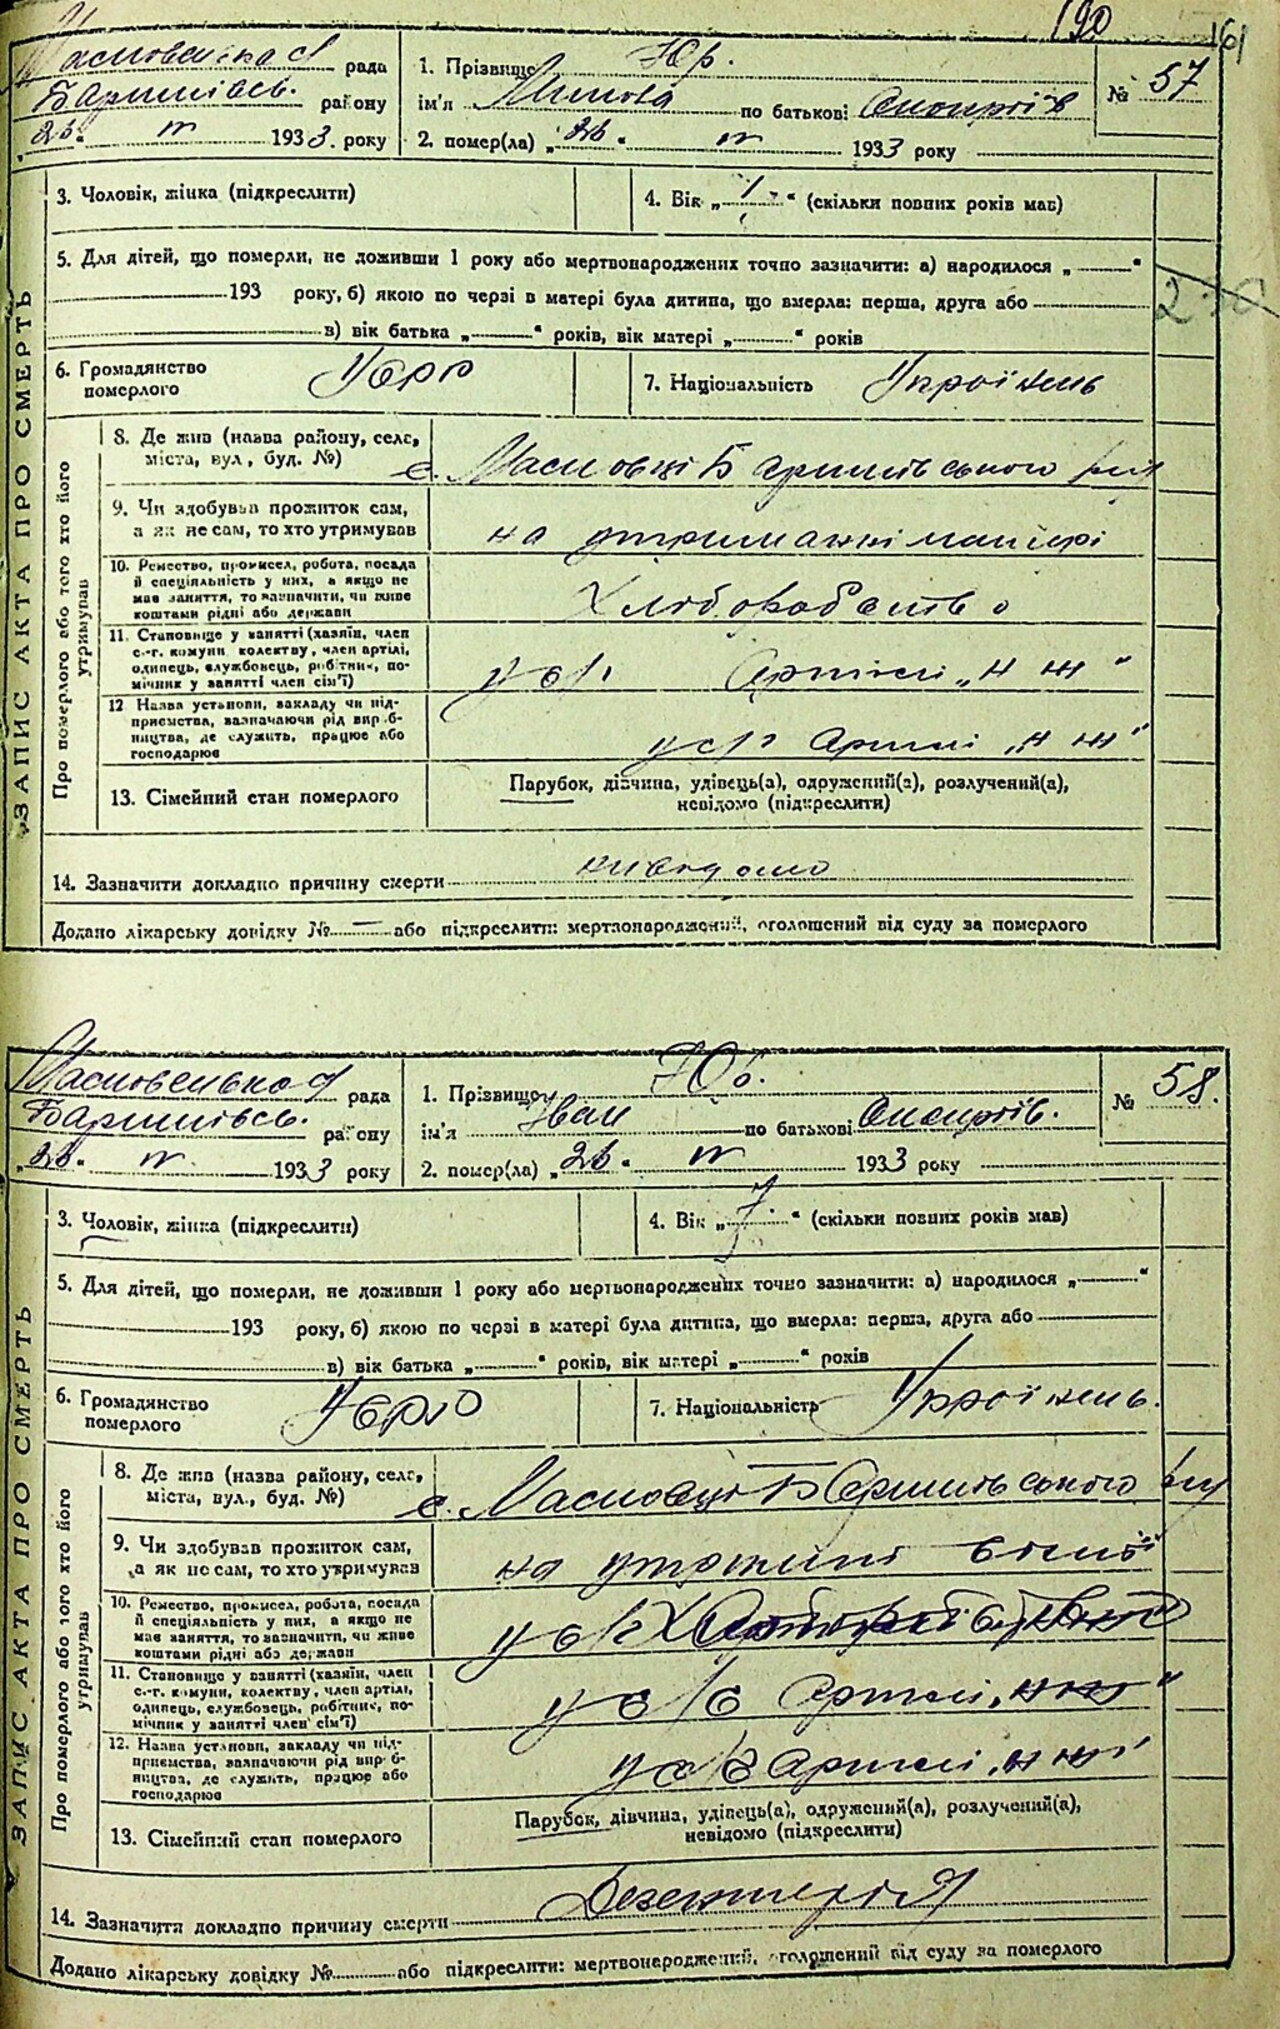 190
161
Масловська рада
Баришівсь. району
„26“ IV 1933 року
1. Прізвище Юр.
ім'я Микола по батькові Онопріїв
2. помер(ла) „26“ IV 1933 року
№ 57
3. Чоловік, жінка (підкреслити)
4. Вік „1“ (скільки повних років мав)
5. Для дітей, що померли, не доживши 1 року або мертвонароджених точно зазначити: а) народилося „ “
193 року, б) якою по черзі в матері була дитина, що вмерла: перша, друга або
в) вік батька „ “ років, вік матері „ “ років
6. Громадянство померлого УСРР
7. Національність Українець
ЗАПИС АКТА ПРО СМЕРТЬ
Про померлого або того хто його утримував
8. Де жив (назва району, село, міста, вул, буд. №)
с. Масловці Баришівського р-ну
9. Чи здобував прожиток сам, а як не сам, то хто утримував
на утриманні матері
10. Ремество, промисел, робота, посада й спеціяльність у них, а якщо не має заняття, то зазначити, чи живе коштами рідні або держави
Хліборобство
11. Становище у занятті (хазяїн, член с.-г. комуни колективу, член артілі, одинець, службовець, робітник, помічник у занятті член сім'ї)
у с/г Артілі „Н Ж“
12 Назва установи, закладу чи підприємства, зазначаючи рід виробництва, де служить, працює або господарює
у с/г Артілі „Н Ж“
13. Сімейний стан померлого
Парубок, дівчина, удівець(а), одружений(а), розлучений(а), невідомо (підкреслити)
14. Зазначити докладно причину смерти невідомо
Додано лікарську довідку № або підкреслити: мертвонароджений, оголошений від суду за померлого
Масловська рада
Баришівсь. району
„26“ IV 1933 року
1. Прізвище Юр.
ім'я Іван по батькові Онопріїв.
2. помер(ла) „26“ IV 1933 року
№ 58.
3. Чоловік, жінка (підкреслити)
4. Вік „7“ (скільки повних років мав)
5. Для дітей, що померли, не доживши 1 року або мертвонароджених точно зазначити: а) народилося „ “
193 року, б) якою по черзі в матері була дитина, що вмерла: перша, друга або
в) вік батька „ “ років, вік матері „ “ років
6. Громадянство померлого УСРР
7. Національність Українець.
ЗАПИС АКТА ПРО СМЕРТЬ
Про померлого або того хто його утримував
8. Де жив (назва району, село, міста, вул., буд. №)
с. Масловці Баришівського р-ну
9. Чи здобував прожиток сам, а як не сам, то хто утримував
на
10. Ремество, промисел, робота, посада й спеціяльність у них, а якщо не має заняття, то зазначити, чи живе коштами рідні або держави
у с/г
11. Становище у занятті (хазяїн, член с.-г. комуни, колективу, член артілі, одинець, службовець, робітник, помічник у занятті член сім'ї)
у с/г Артілі „Н Ж“
12. Назва установи, закладу чи підприємства, зазначаючи рід виробництва, де служить, працює або господарює
у с/г Артілі „Н Ж“
13. Сімейний стан померлого
Парубок, дівчина, удівець(а), одружений(а), розлучений(а), невідомо (підкреслити)
14. Зазначити докладно причину смерти Дезентерія
Додано лікарську довідку № або підкреслити: мертвонароджений, оголошений від суду за померлого